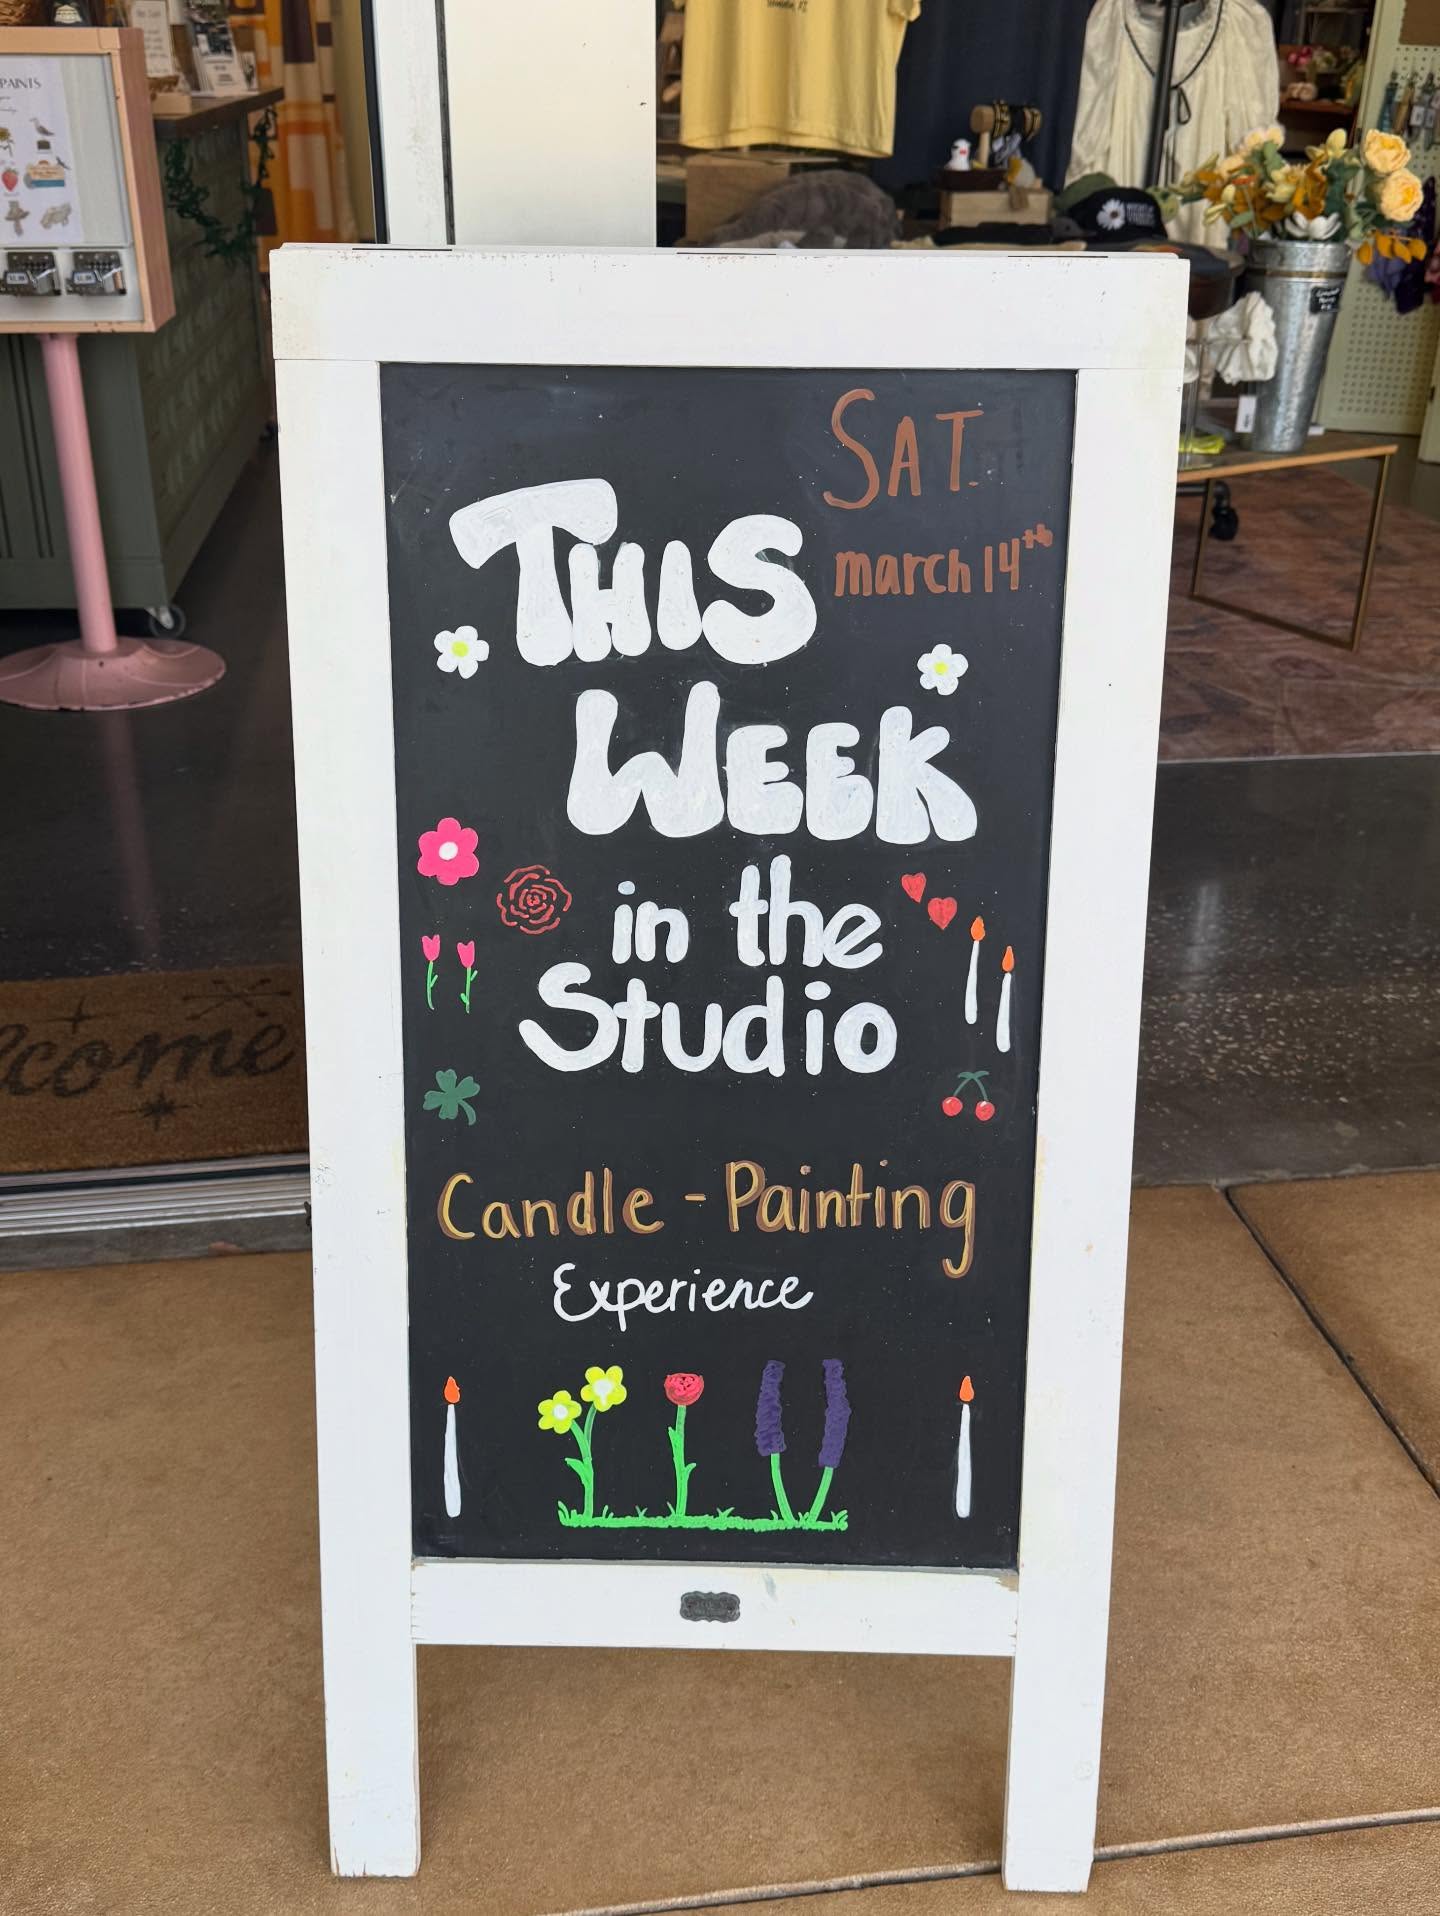 PAINTS
SAT.
march 14th
THIS
WEEK
in the
Studio
Candle - Painting
Experience
lcome